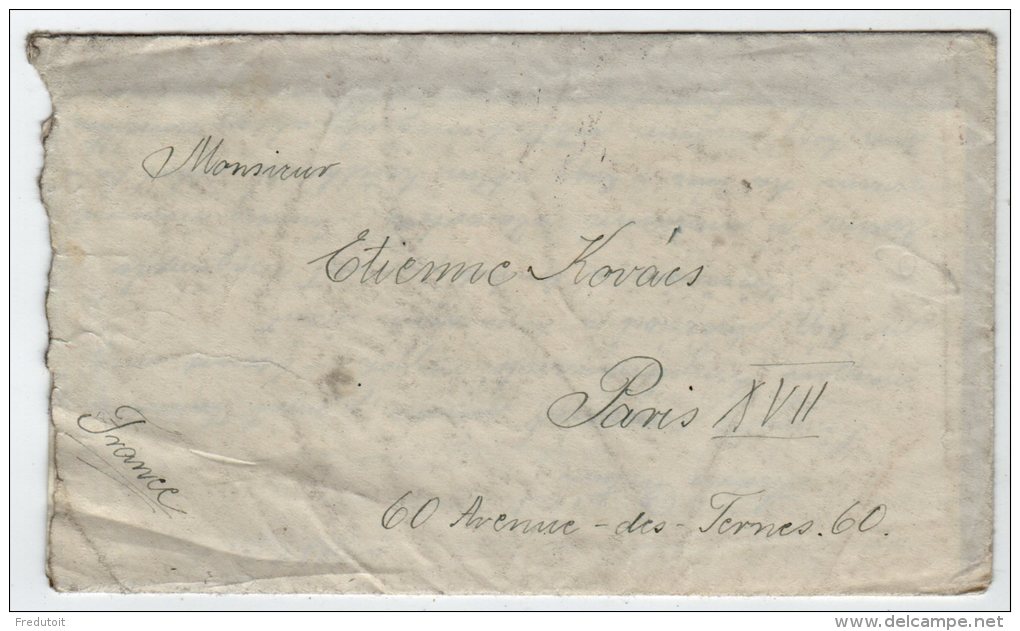 Monsieur
Etienne Kovács
Paris XVII
France
60 Avenue-des-Ternes.60.
Fredutoit
www.delcampe.net